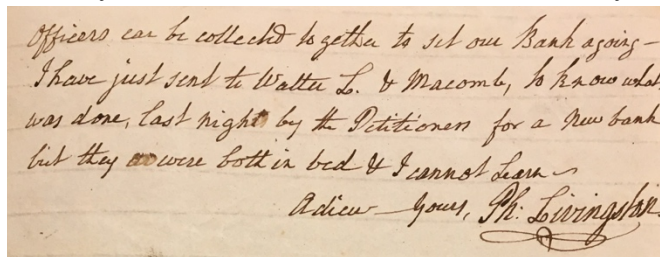 Officers can be collected together to set our Bank agoing –
I have just sent to Walter L. & Macomb, to know what
was done, last night by the Petitioners for a New bank
but they were both in bed & I cannot Learn –
Adieu – Yours, Ph. Livingston